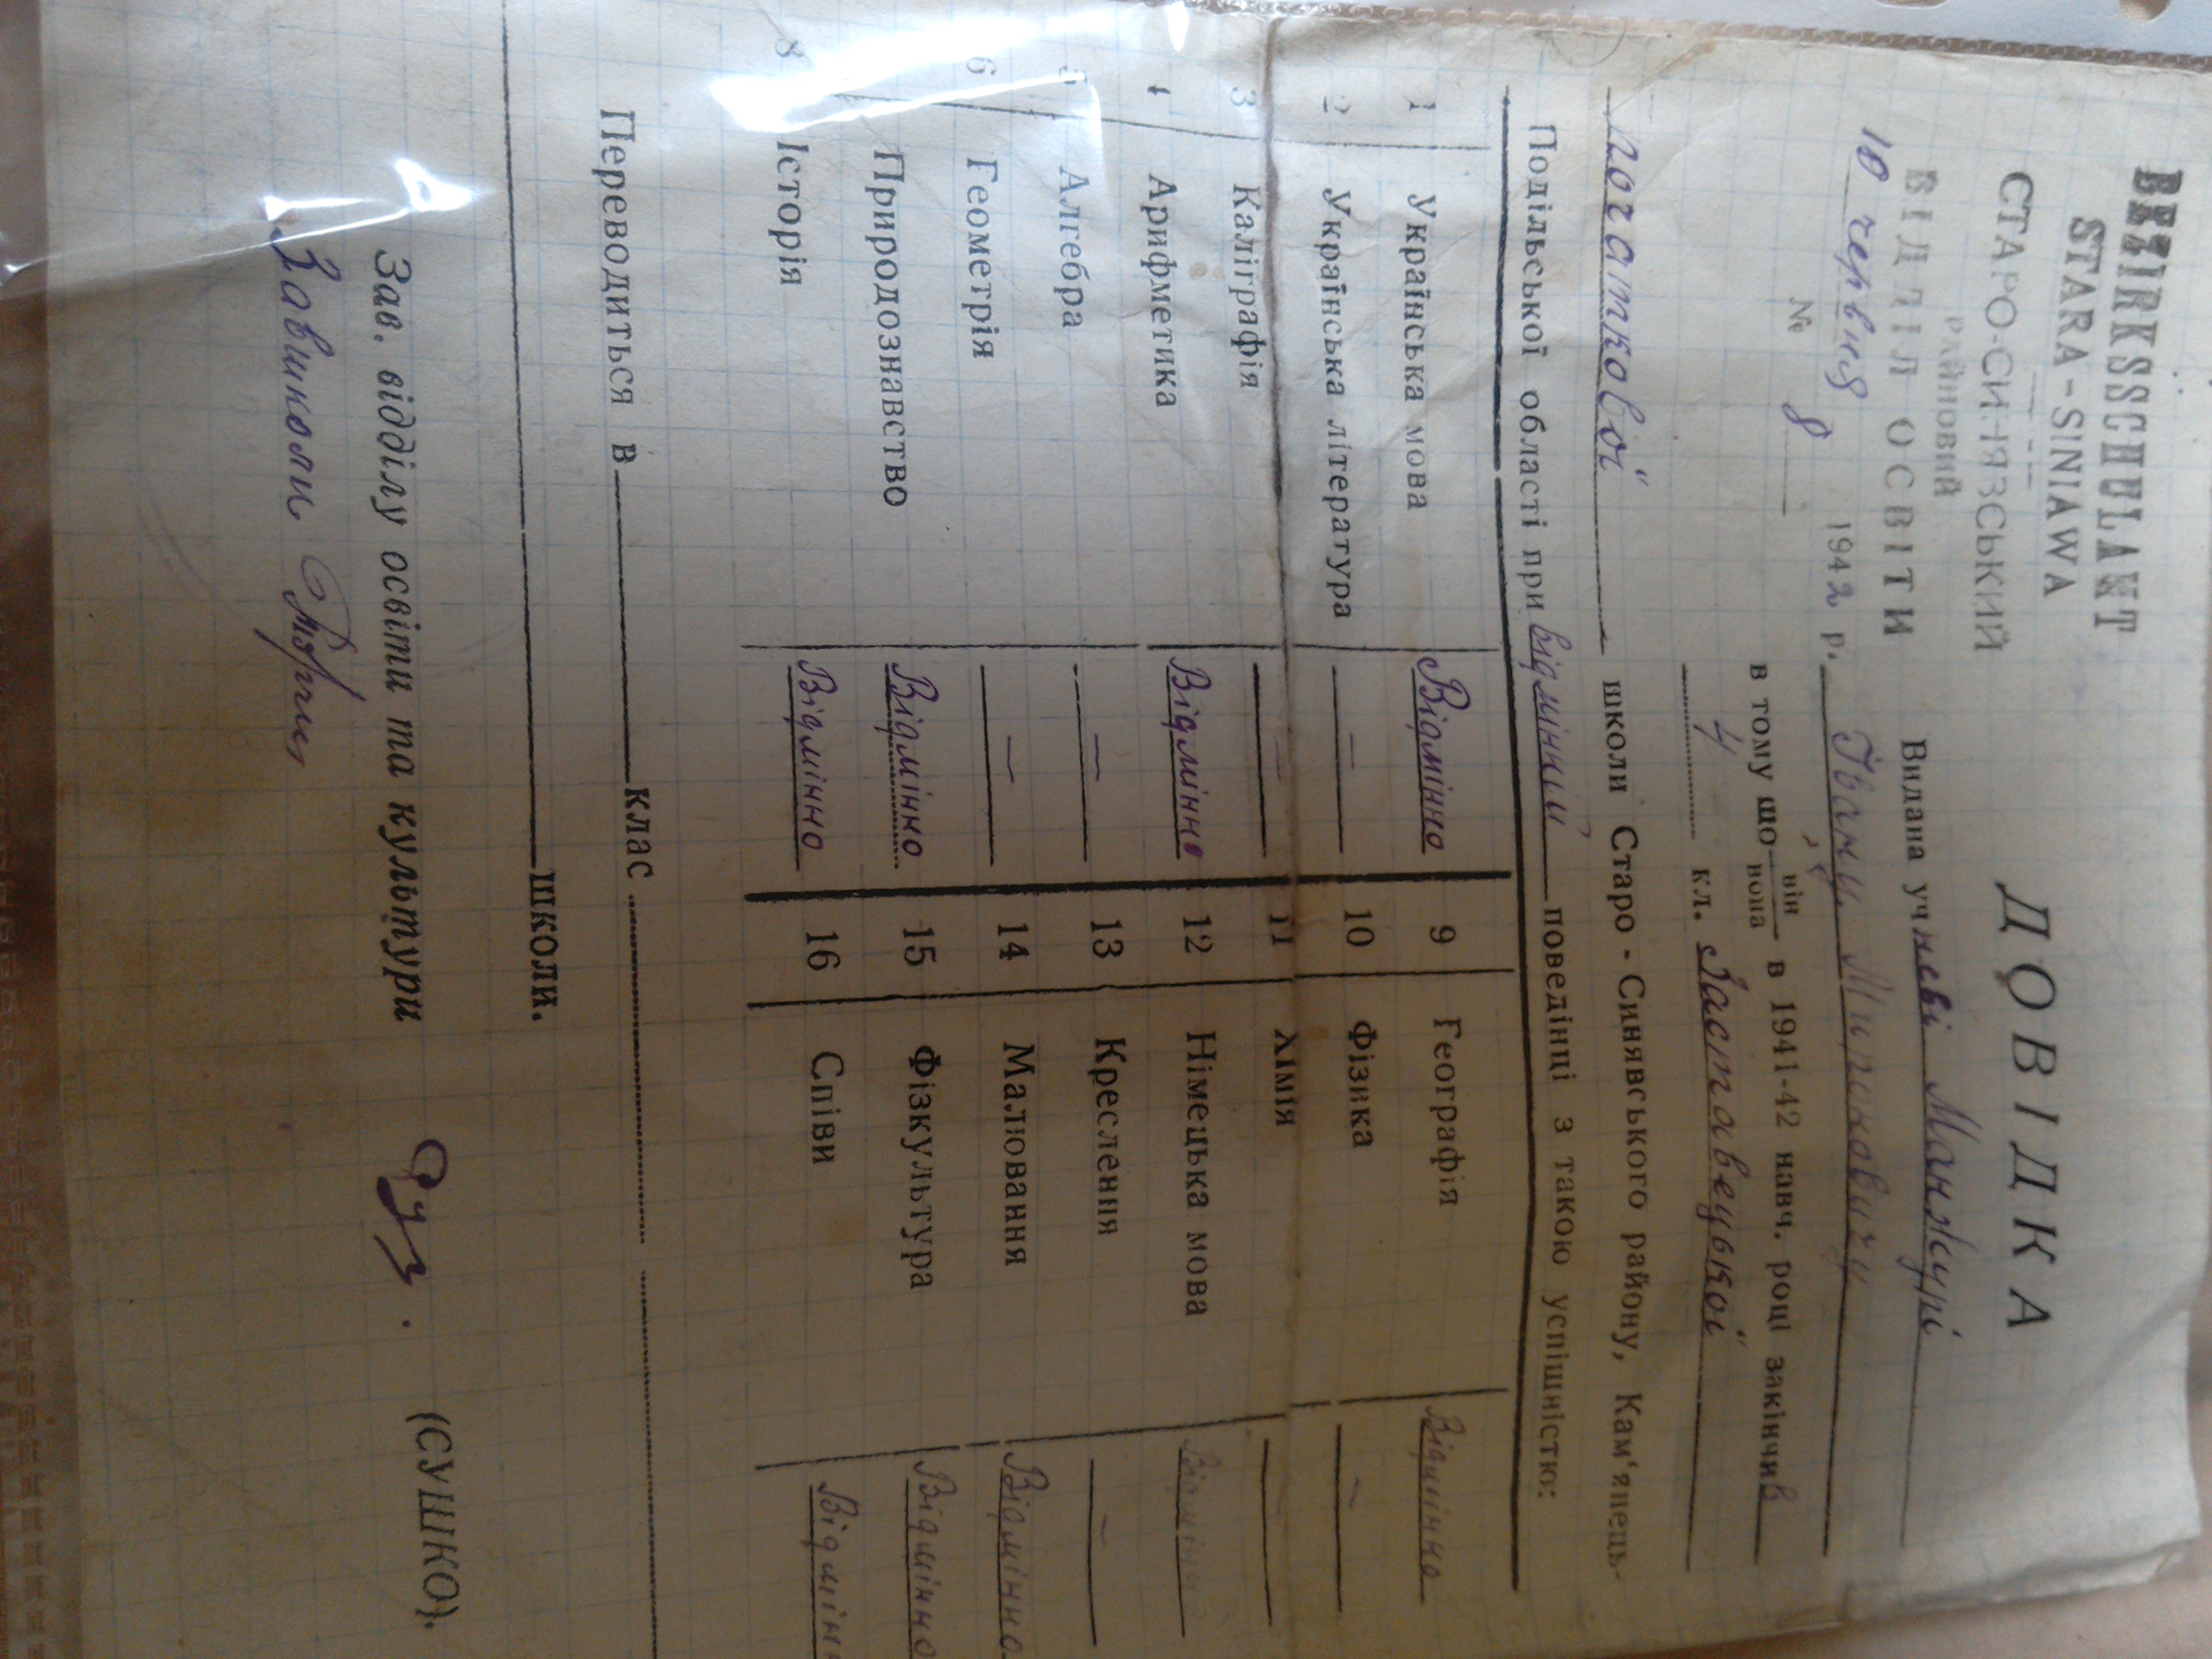 BEZIRKSSCHULAMT
STARA-SINIAWA
СТАРО-СИНЯВСЬКИЙ
РАЙОНОВИЙ
ВІДДІЛ ОСВІТИ
10 червня 1942 р.
№ 8
ДОВІДКА
Видана учневі Манжурі
Івану Мироновичу
в тому що він вона в 1941-42 навч. році закінчив
4 кл. Заставецької
початкової школи Старо - Синявського району, Кам'янець-
Подільської області при відмінній поведінці з такою успішністю:
1 Українська мова Відмінно 9 Географія Відмінно
2 Українська література — 10 Фізика —
3 Каліграфія — 11 Хімія —
4 Арифметика Відмінно 12 Німецька мова Відмінно
5 Алгебра — 13 Креслення —
6 Геометрія — 14 Малювання Відмінно
Природознавство Відмінно 15 Фізкультура Відмінно
8 Історія Відмінно 16 Співи Відмін
Переводиться в клас
школи.
Зав. відділу освіти та культури (СУШКО).
Завшколи